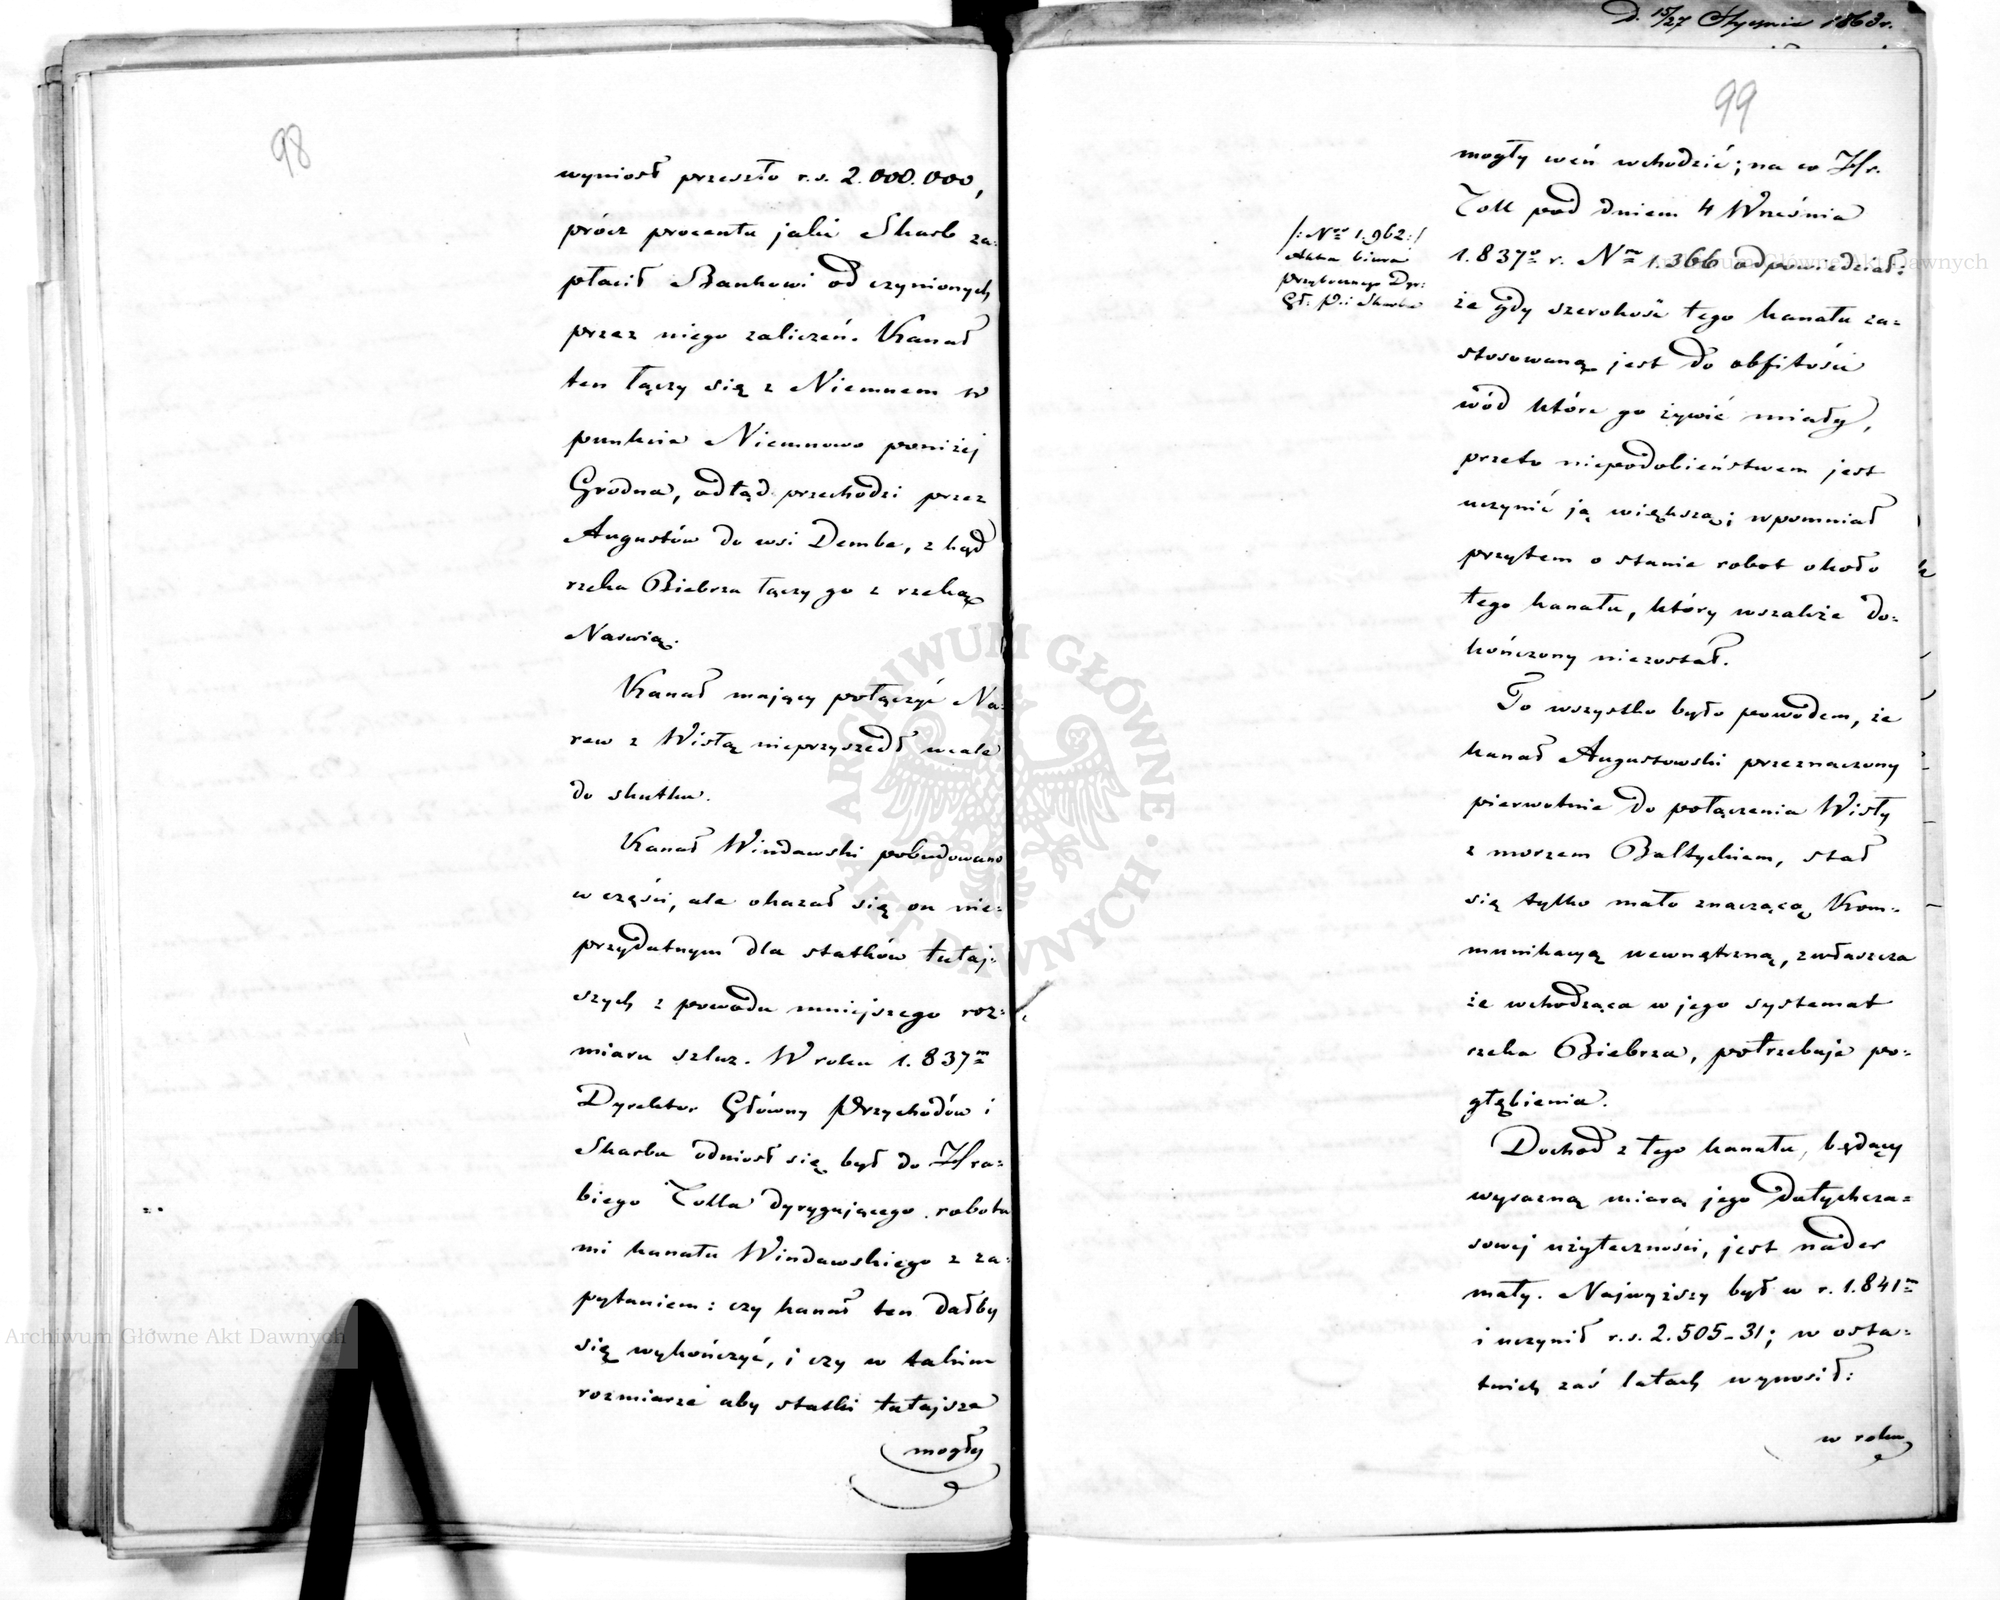 98
wyniosł przeszło r.s. 2.000.000,
prócz procentu jaki Skarb za-
płacił Bankowi od czynionych
przez niego zaliczeń. Kanał
ten łączy się z Niemnem w
punkcie Niemnowo poniżej
Grodna, odtąd przechodzi przez
Augustów do wsi Dembe, z kąd
rzeka Biebrza łączy go z rzeką
Narwią.
Kanał mający połączyć Na-
rew z Wisłą nieprzyszedł wcale
do skutku.
Kanał Windawski pobudowano
w części, ale okazał się on nie-
przydatnym dla statków tutej-
szych z powodu mniejszego roz-
miaru szluz. W roku 1.837m
Dyrektor Główny Przychodów i
Skarbu odniosł się był do Hra-
biego Tolla dyrygującego robota
mi kanału Windawskiego z za-
pytaniem: czy kanał ten dałby
się wykończyć, i czy w takim
rozmiarze aby statki tutejsze
mogły
D. 15/27 Stycznia 1863 r.
99
mogły weń wchodzić; na co Hr.
Toll pod dniem 4 Września
1.837o r. Nro 1.366 odpowiedział:
że gdy szerokość tego kanału za-
stosowaną jest do obfitości
wód które go żywić miały,
przeto niepodobieństwem jest
uczynić ją większą; wpomniał
przytem o stanie robot około
tego kanału, który wszakże do-
kończony niezostał.
To wszystko było powodem, że
kanał Augustowski przeznaczony
pierwotnie do połączenia Wisły
z morzem Baltyckiem, stał
się tylko mało znaczącą Kom-
munikacyą wewnętrzną, zwłaszcza
że wchodząca w jego systemat
rzeka Biebrza, potrzebuje po-
głębienia.
Dochod z tego kanału, będący
wyraźną miarą jego dotychcza-
sowej użyteczności, jest nader
mały. Najwyższy był w r. 1.841m
i uczynił r.s. 2.505-31; w osta-
tnich zaś latach wynosił:
w roku
/: Nro 1.962:/
Akta biura
przybocznego Dyr:
Gł: P: i Skarbu
Archiwum Główne Akt Dawnych
Archiwum Główne Akt Dawnych
ARCHIWUM GŁÓWNE AKT DAWNYCH